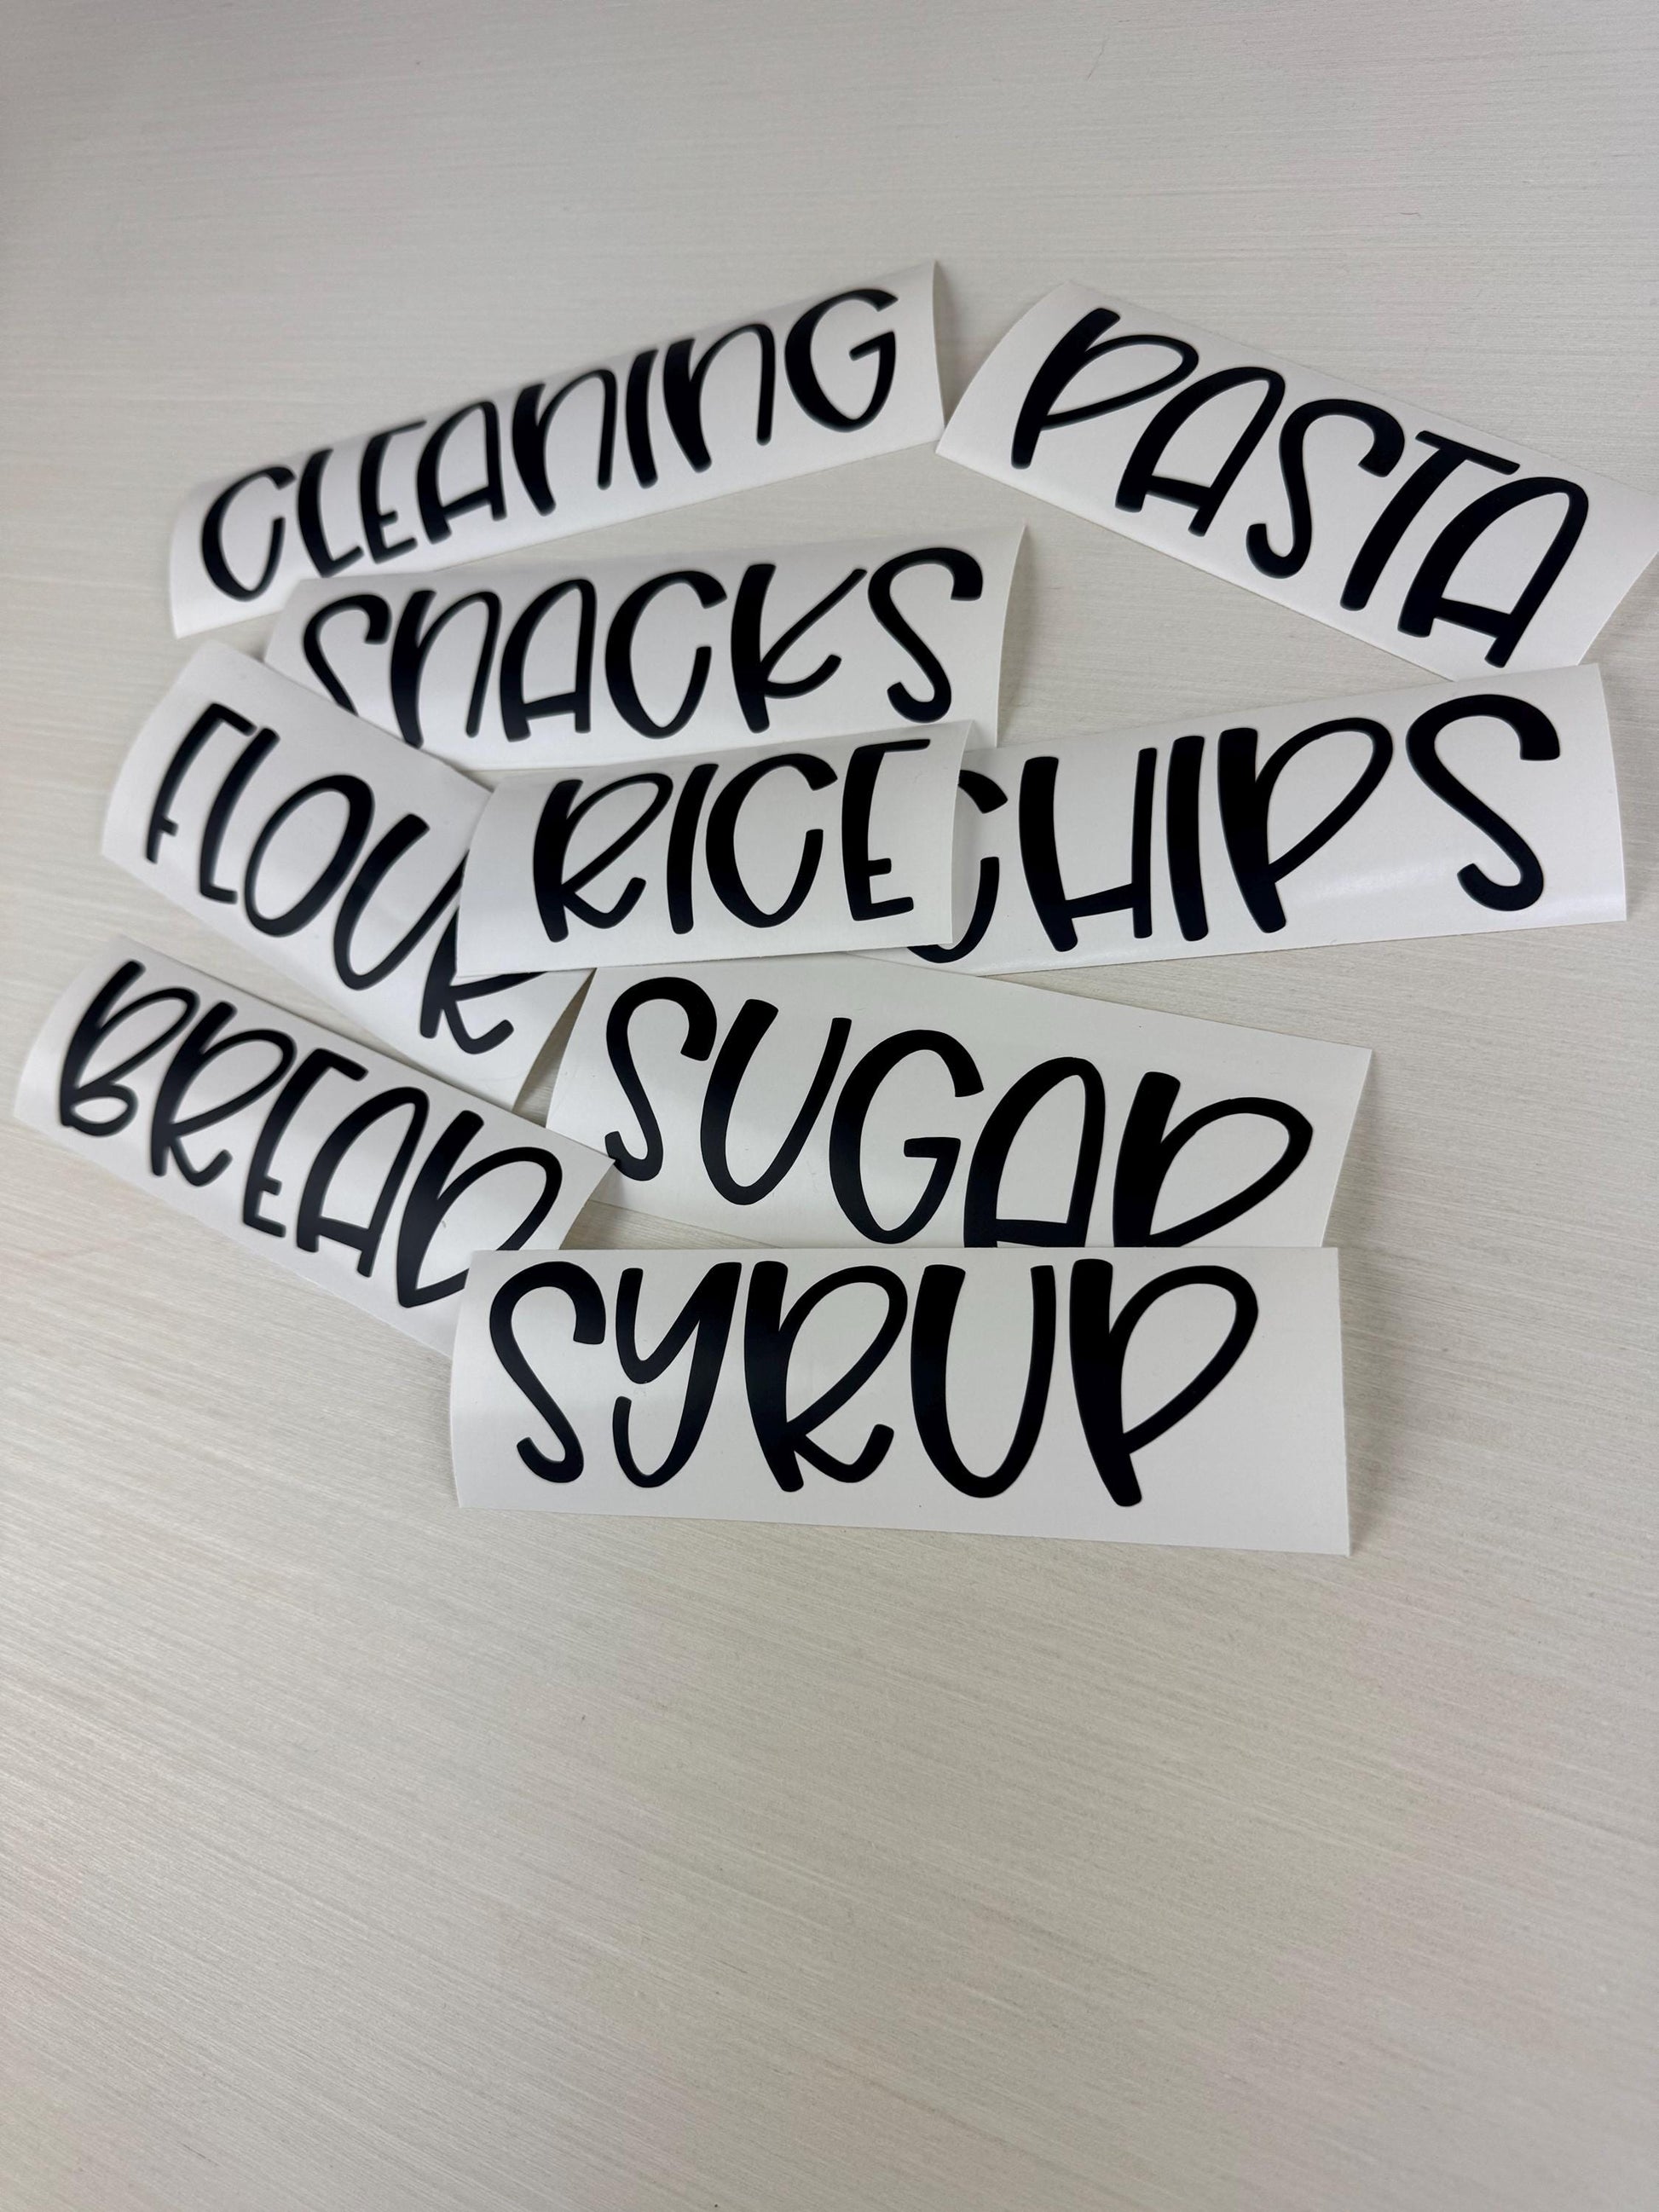 CLEANING
PASTA
SNACKS
FLOUR
RICE
CHIPS
BREAD
SUGAR
SYRUP